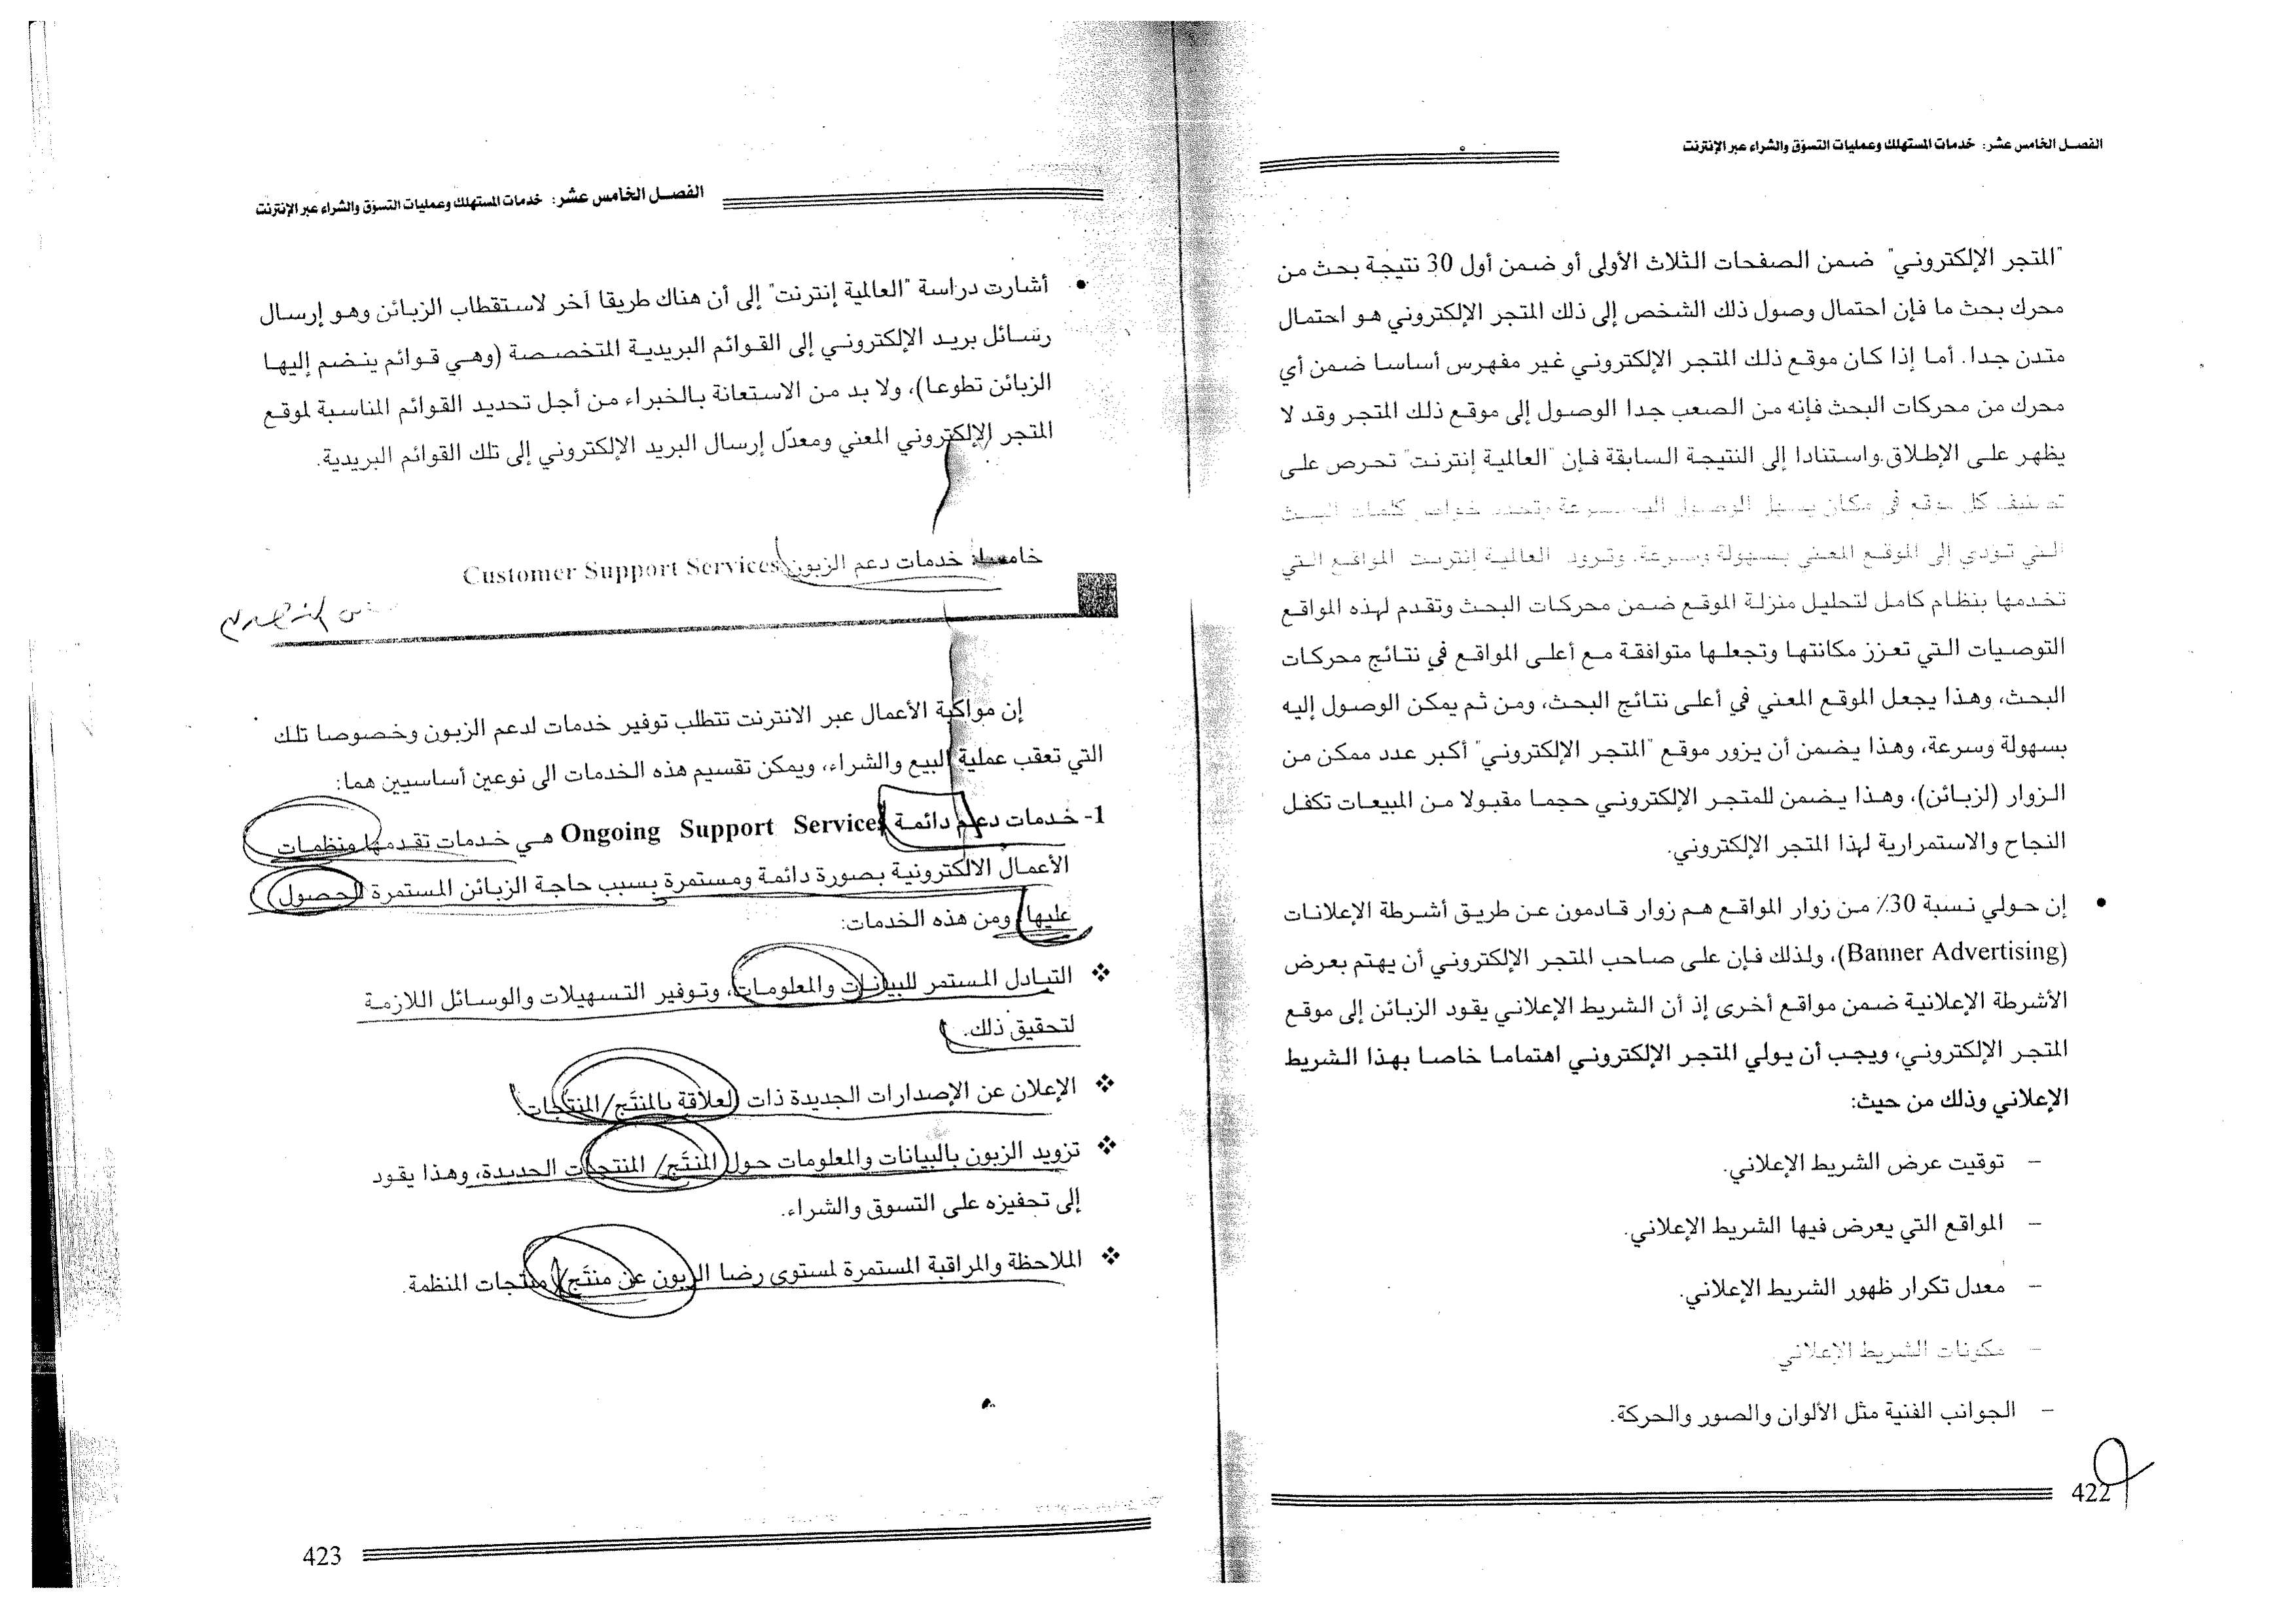 الفصل الخامس عشر: خدمات المستهلك وعمليات التسوّق والشراء عبر الإنترنت
"المتجر الإلكتروني" ضمن الصفحات الثلاث الأولى أو ضمن أول 30 نتيجة بحث من
محرك بحث ما فإن احتمال وصول ذلك الشخص إلى ذلك المتجر الإلكتروني هو احتمال
متدن جدا. أما إذا كان موقع ذلك المتجر الإلكتروني غير مفهرس أساسا ضمن أي
محرك من محركات البحث فإنه من الصعب جدا الوصول إلى موقع ذلك المتجر وقد لا
يظهر على الإطلاق.واستنادا إلى النتيجة السابقة فإن "العالمية إنترنت" تحرص على
تصنيف كل موقع في مكان يسهل الوصول إليه بسرعة وتحدد خواص كلمات البحث
التي تؤدي إلى الموقع المعني بسهولة وسرعة. وتزود العالمية إنترنت المواقع التي
تخدمها بنظام كامل لتحليل منزلة الموقع ضمن محركات البحث وتقدم لهذه المواقع
التوصيات التي تعزز مكانتها وتجعلها متوافقة مع أعلى المواقع في نتائج محركات
البحث، وهذا يجعل الموقع المعني في أعلى نتائج البحث، ومن ثم يمكن الوصول إليه
بسهولة وسرعة، وهذا يضمن أن يزور موقع "المتجر الإلكتروني" أكبر عدد ممكن من
الزوار (لزبائن)، وهذا يضمن للمتجر الإلكتروني حجما مقبولا من المبيعات تكفل
النجاح والاستمرارية لهذا المتجر الإلكتروني.
• إن حولي نسبة 30٪ من زوار المواقع هم زوار قادمون عن طريق أشرطة الإعلانات
(Banner Advertising)، ولذلك فإن على صاحب المتجر الإلكتروني أن يهتم بعرض
الأشرطة الإعلانية ضمن مواقع أخرى إذ أن الشريط الإعلاني يقود الزبائن إلى موقع
المتجر الإلكتروني، ويجب أن يولي المتجر الإلكتروني اهتماما خاصا بهذا الشريط
الإعلاني وذلك من حيث:
– توقيت عرض الشريط الإعلاني.
– المواقع التي يعرض فيها الشريط الإعلاني.
– معدل تكرار ظهور الشريط الإعلاني.
– مكونات الشريط الإعلاني.
– الجوانب الفنية مثل الألوان والصور والحركة.
422
الفصل الخامس عشر: خدمات المستهلك وعمليات التسوّق والشراء عبر الإنترنت
• أشارت دراسة "العالمية إنترنت" إلى أن هناك طريقا آخر لاستقطاب الزبائن وهو إرسال
رسائل بريد الإلكتروني إلى القوائم البريدية المتخصصة (وهي قوائم ينضم إليها
الزبائن تطوعا)، ولا بد من الاستعانة بالخبراء من أجل تحديد القوائم المناسبة لموقع
المتجر الإلكتروني المعني ومعدّل إرسال البريد الإلكتروني إلى تلك القوائم البريدية.
خامسا: خدمات دعم الزبون Customer Support Services
إن مواكبة الأعمال عبر الانترنت تتطلب توفير خدمات لدعم الزبون وخصوصا تلك
التي تعقب عملية البيع والشراء، ويمكن تقسيم هذه الخدمات الى نوعين أساسيين هما:
1- خدمات دعم دائمة Ongoing Support Services هي خدمات تقدمها منظمات
الأعمال الالكترونية بصورة دائمة ومستمرة بسبب حاجة الزبائن المستمرة للحصول
عليها، ومن هذه الخدمات:
❖ التبادل المستمر للبيانات والمعلومات، وتوفير التسهيلات والوسائل اللازمة
لتحقيق ذلك.
❖ الإعلان عن الإصدارات الجديدة ذات العلاقة بالمنتَج/المنتجات.
❖ تزويد الزبون بالبيانات والمعلومات حول المنتَج/ المنتجات الجديدة، وهذا يقود
إلى تحفيزه على التسوق والشراء.
❖ الملاحظة والمراقبة المستمرة لمستوى رضا الزبون عن منتَج/ منتجات المنظمة.
423